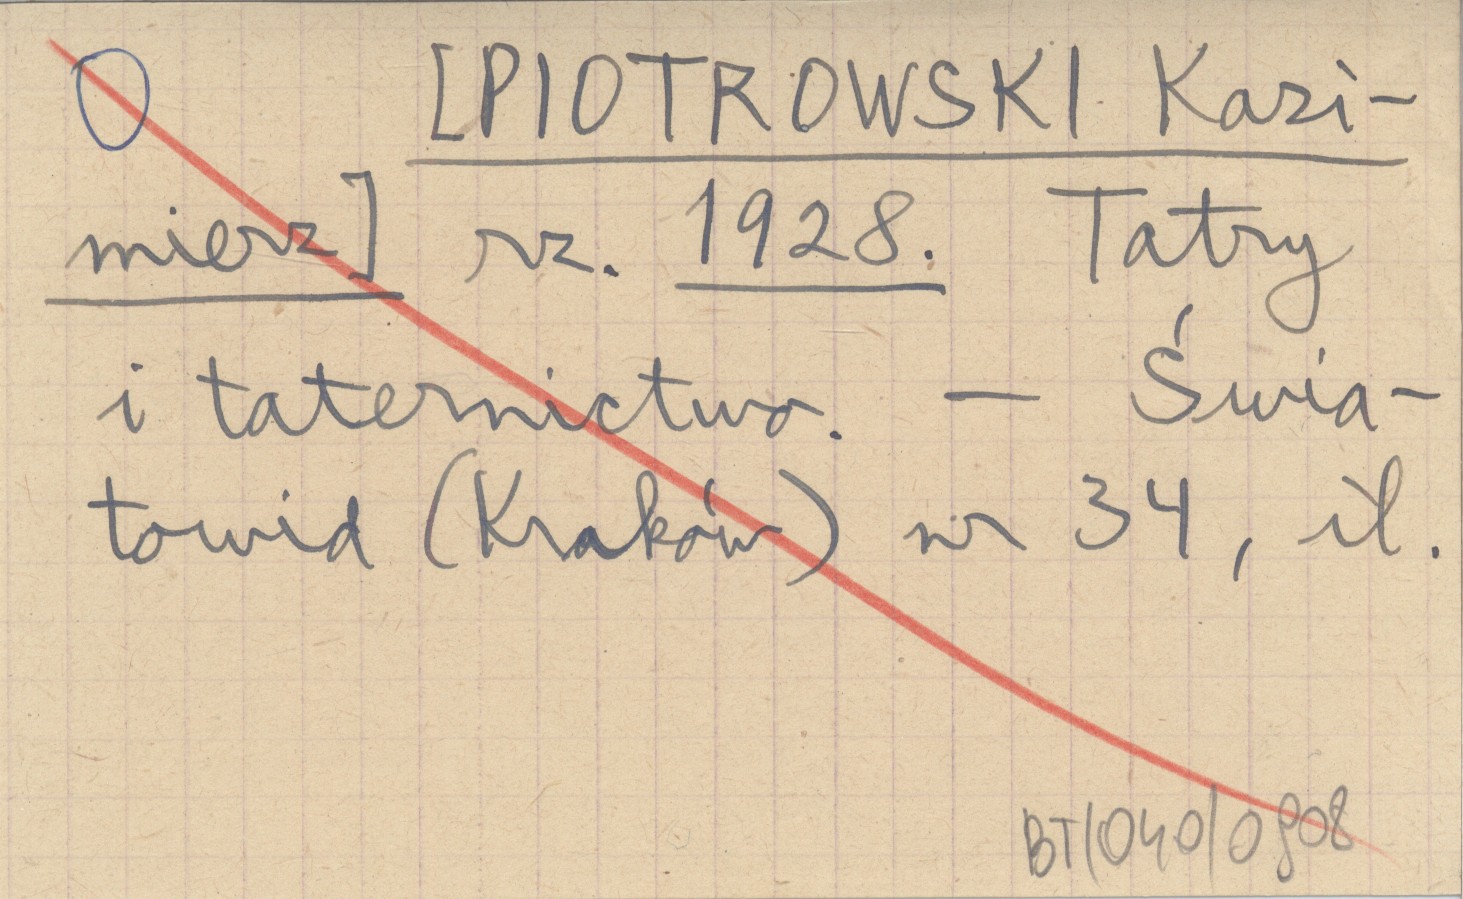 O [PIOTROWSKI Kazi-
mierz] rz. 1928. Tatry
i taternictwo. — Świa-
towid (Kraków) nr 34, il.
BT/040/0808